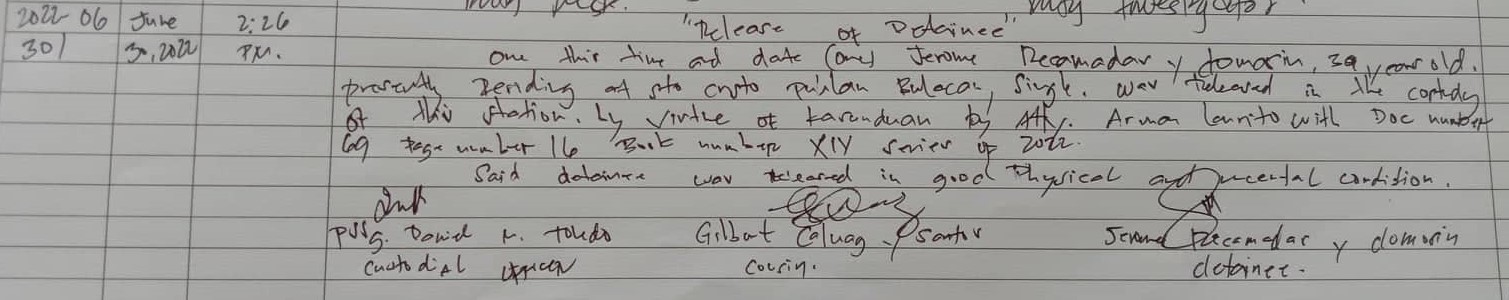 2022-06 June 2:26 "Release of Detainee"
301 30, 2022 PM. One this time and date (one) Jerome Recamadar y domorin, 39 years old.
presently Rending at sto cristo pulilan Bulacan, Single. was Released in the custody
of this station. by virtue of karunduan by Atty. Arman Laurito with Doc number
69 Page number 16 Book number XIV series of 2022.
Said detainee was released in good Physical and mental condition.
PSSg. David M. Toledo Gilbert Caluag y santos Jerome Recamadar y domorin
Custodial officer Cousin. detainee.